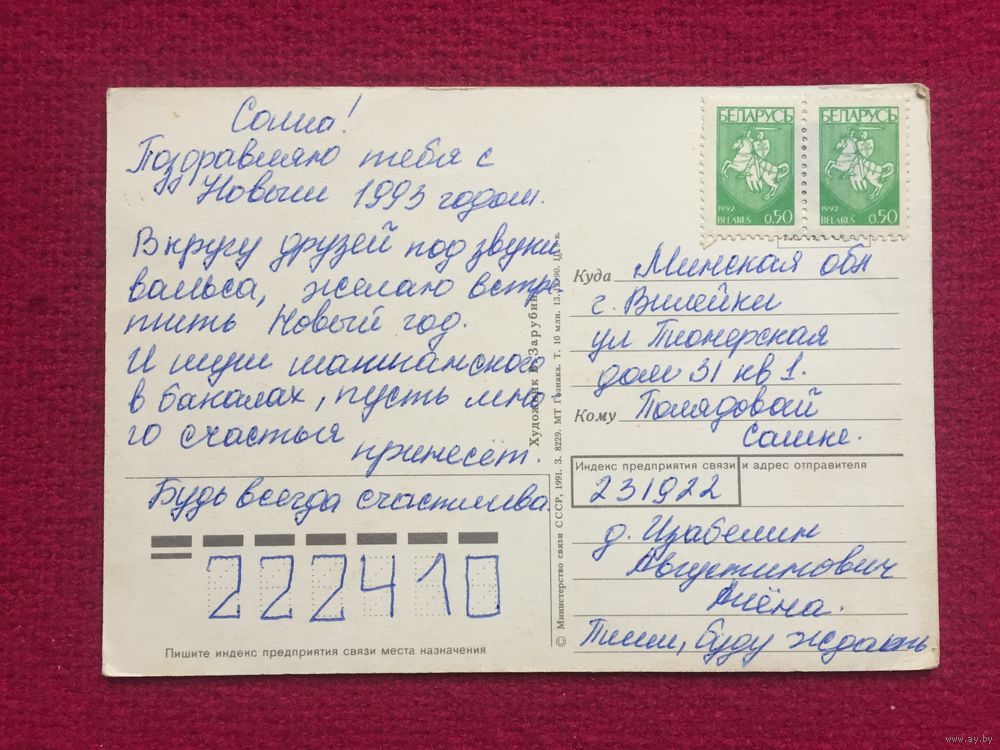 Солиа!
Поздравляю тебя с
Новым 1993 годом.
В кругу друзей под звуки
вальса, желаю встре
тить Новый год.
И шум шампанского
в бокалах, пусть мно
го счастья
принесёт.
Будь всегда счастлива.
222410
Пишите индекс предприятия связи места назначения
Художник В. Зарубин
© Министерство связи СССР, 1991. З. 8229. МТ Гознака. Т. 10 млн.
БЕЛАРУСЬ
1992
BELARUS 0.50
БЕЛАРУСЬ
1992
BELARUS 0.50
Куда Минская обл
г. Вилейки
ул Пионерская
дом 31 кв 1.
Кому
Индекс предприятия связи и адрес отправителя
231922
д. Изабелин
Августинович
Алёна.
Пиши, буду ждать
www.ay.by